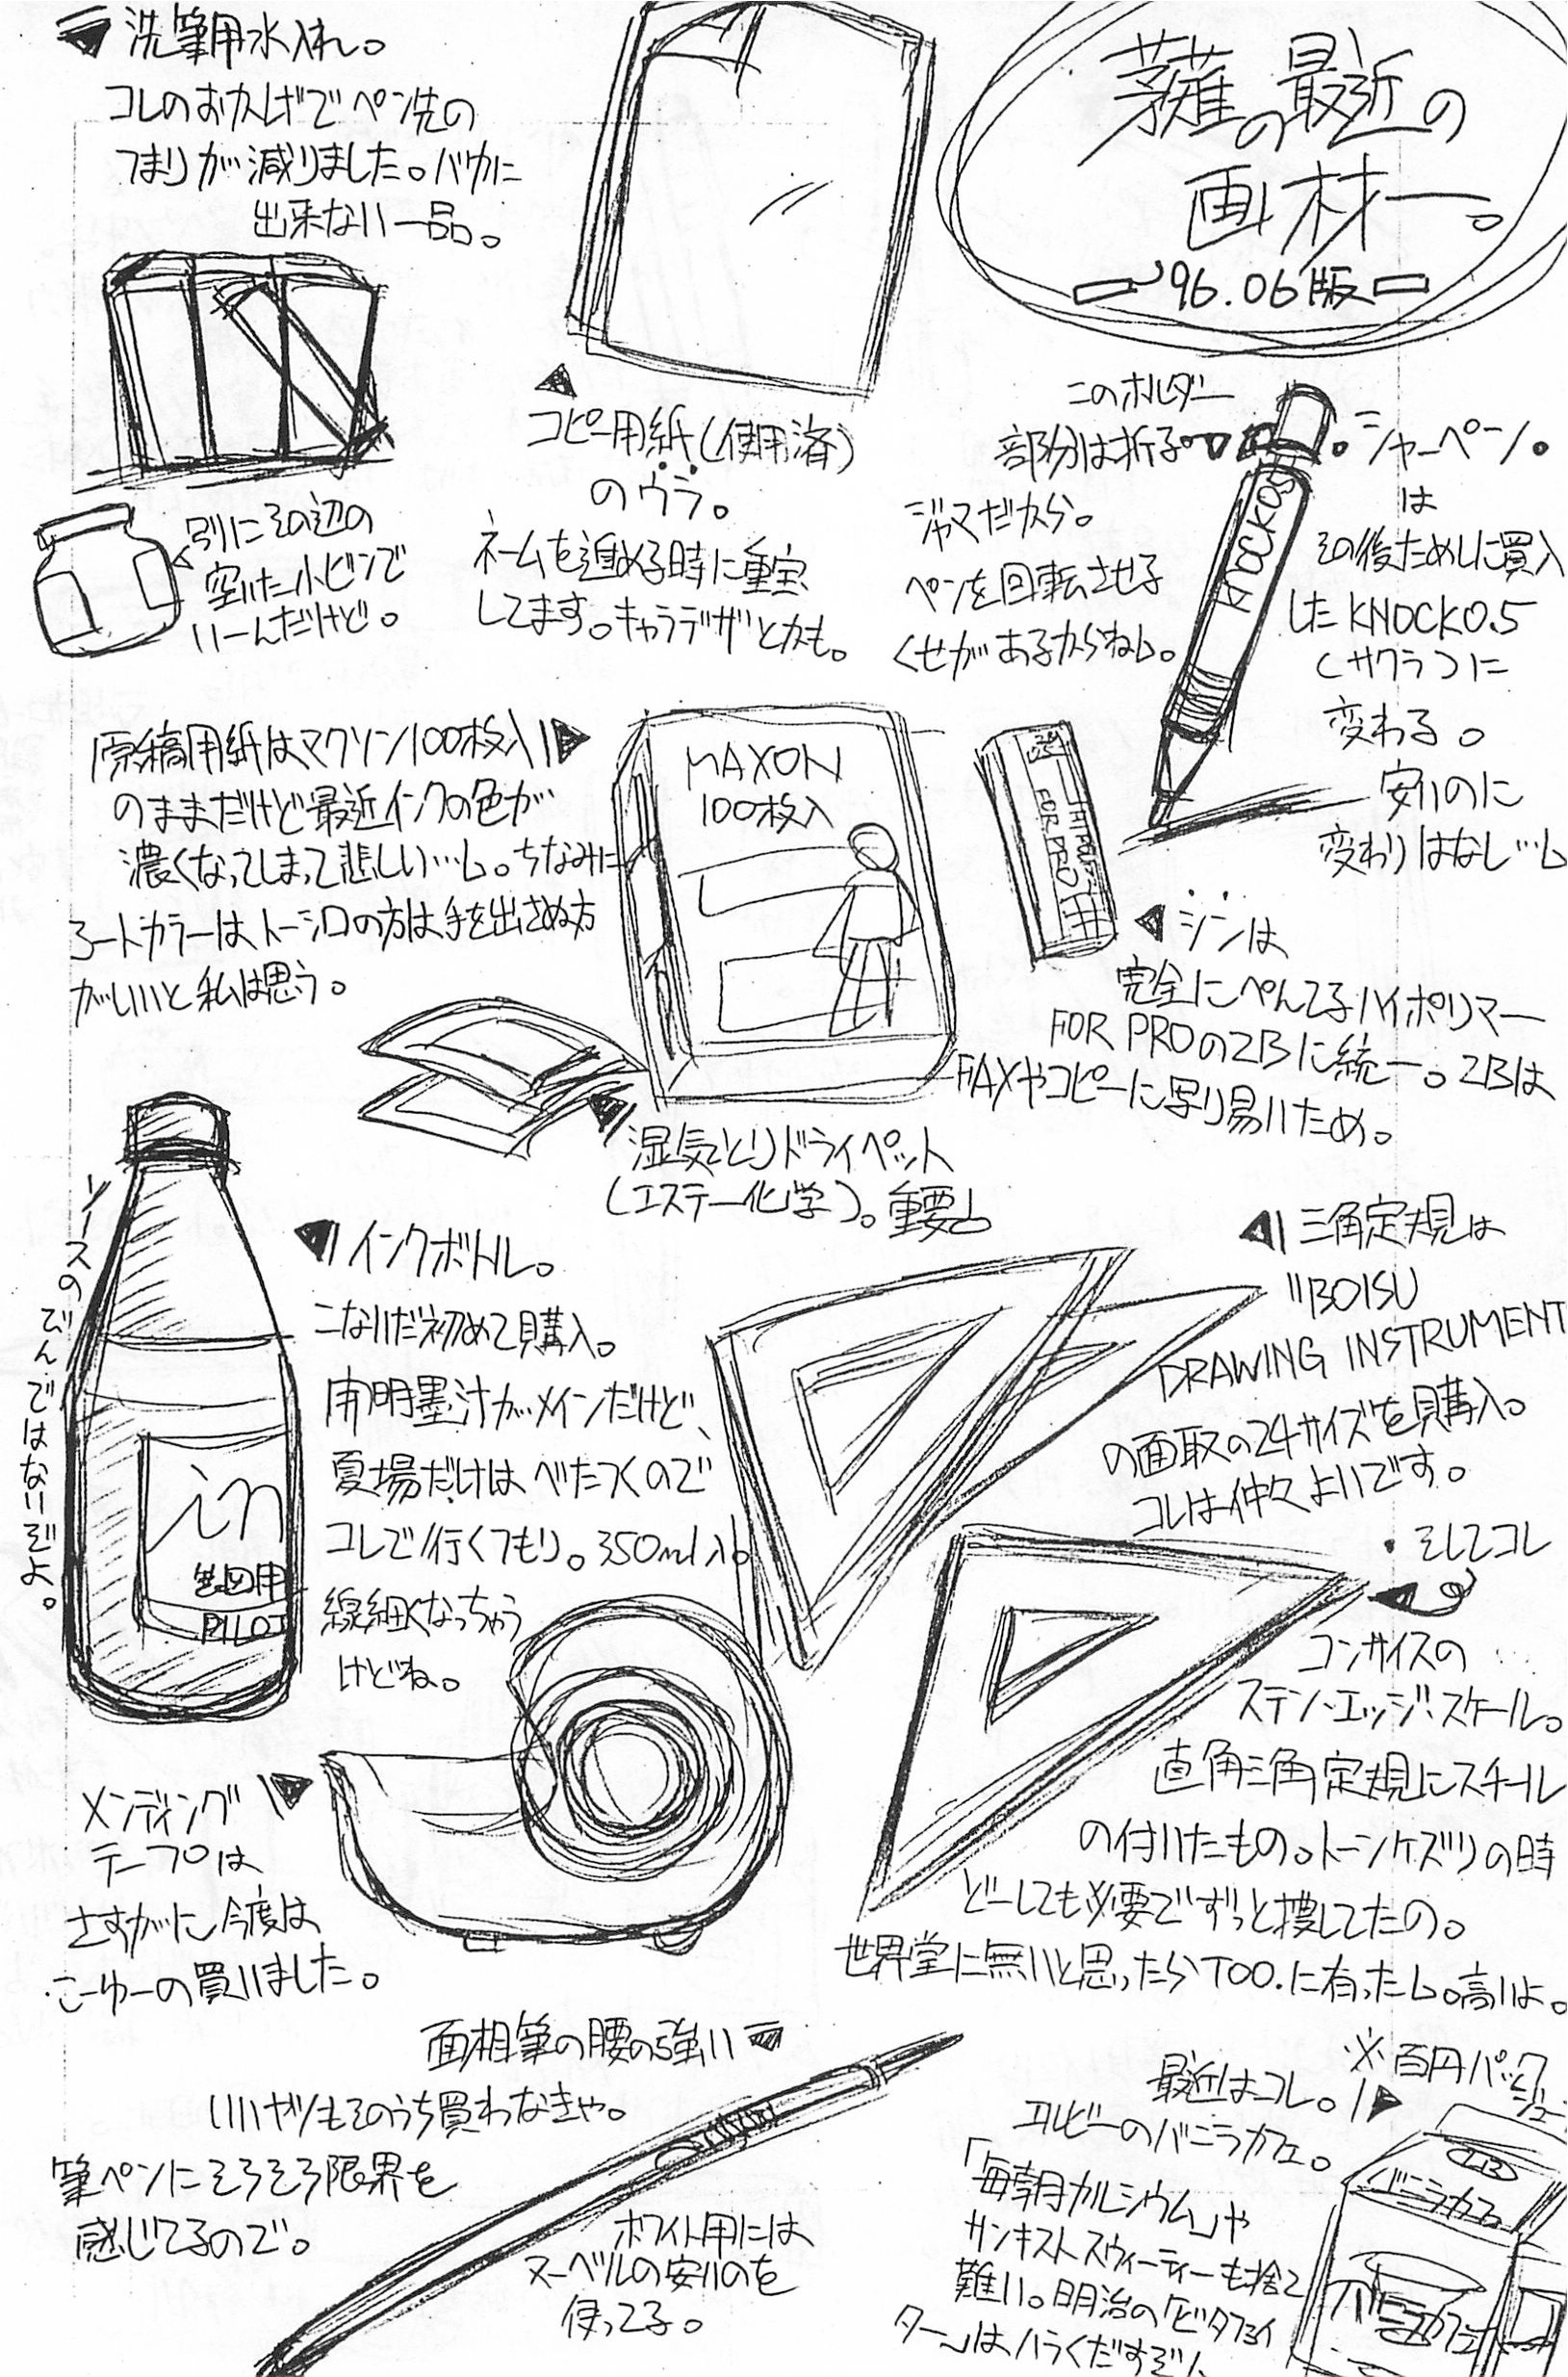 洗筆用水入れ。
コレのおかげでペン先の
つまりが減りました。バカに
出来ない一品。
別にその辺の
空いた小ビンで
いーんだけど。
コピー用紙(使用済)
のウラ。
ネームを進める時に重宝
してます。キャラデザとかも。
の最近の
画材ー。
'96.06版
このホルダー
部分は折る。
ジャマだから。
ペンを回転させる
くせがあるからねヽ。
シャーペン。
は
その後ためしに買入
したKNOCK0.5
(サクラ)に
変わる。
安いのに
変わりはなし…
KNOCK0.5
原稿用紙はマクソン100枚入り
のままだけど最近インクの色が
濃くなってしまって悲しい…。ちなみに
ートカラーは、トーシロの方は手を出さぬ方
がいいと私は思う。
MAXON
100枚入
FOR PRO
シンは
完全にぺんてるハイポリマー
FOR PROの2Bに統一。2Bは
FAXやコピーに写り易いため。
湿気とりドライペット
(エステー化学)。重要
ソースのびんではないぞよ。
in
製図用
PILOT
インクボトル。
こないだ初めて購入。
開明墨汁がメインだけど、
夏場だけはべたつくので
コレで行くつもり。350ml入
線細くなっちゃう
けどね。
三角定規は
"BOISU
DRAWING INSTRUMENT
の面取の24サイズを購入。
コレは仲々よいです。
・そしてコレ
コンサイスの
ステン・エッジ・スケール。
直角三角定規にスチール
の付いたもの。トーンケズリの時
どーしても必要でずっと捜してたの。
世界堂に無いと思ったらTOO.に有った。高いよ。
メンディング
テープは
さすがに今度は
こーゆーの買いました。
面相筆の腰の強い
いいヤツもそのうち買わなきゃ。
筆ペンにそろそろ限界を
感じてるので。
ホワイト用には
ヌーベルの安いのを
使ってる。
※百円パック
ジュー
最近はコレ。
エルビーのバニラカフェ。
「毎朝カルシウム」や
サンキストスウィーティーも捨て
難い。明治の「ビタファイ
ター」はハラくだすぞ
LB
バニラカフェ
バニラカフェ